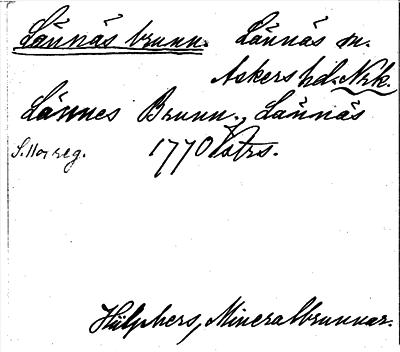 Lännäs brunn. Lännäs sn.
Askers hd. Nrk.
Lännes Brunn, Lännäs
1770 Vstrs.
Hülphers, Mineralbrunnar.